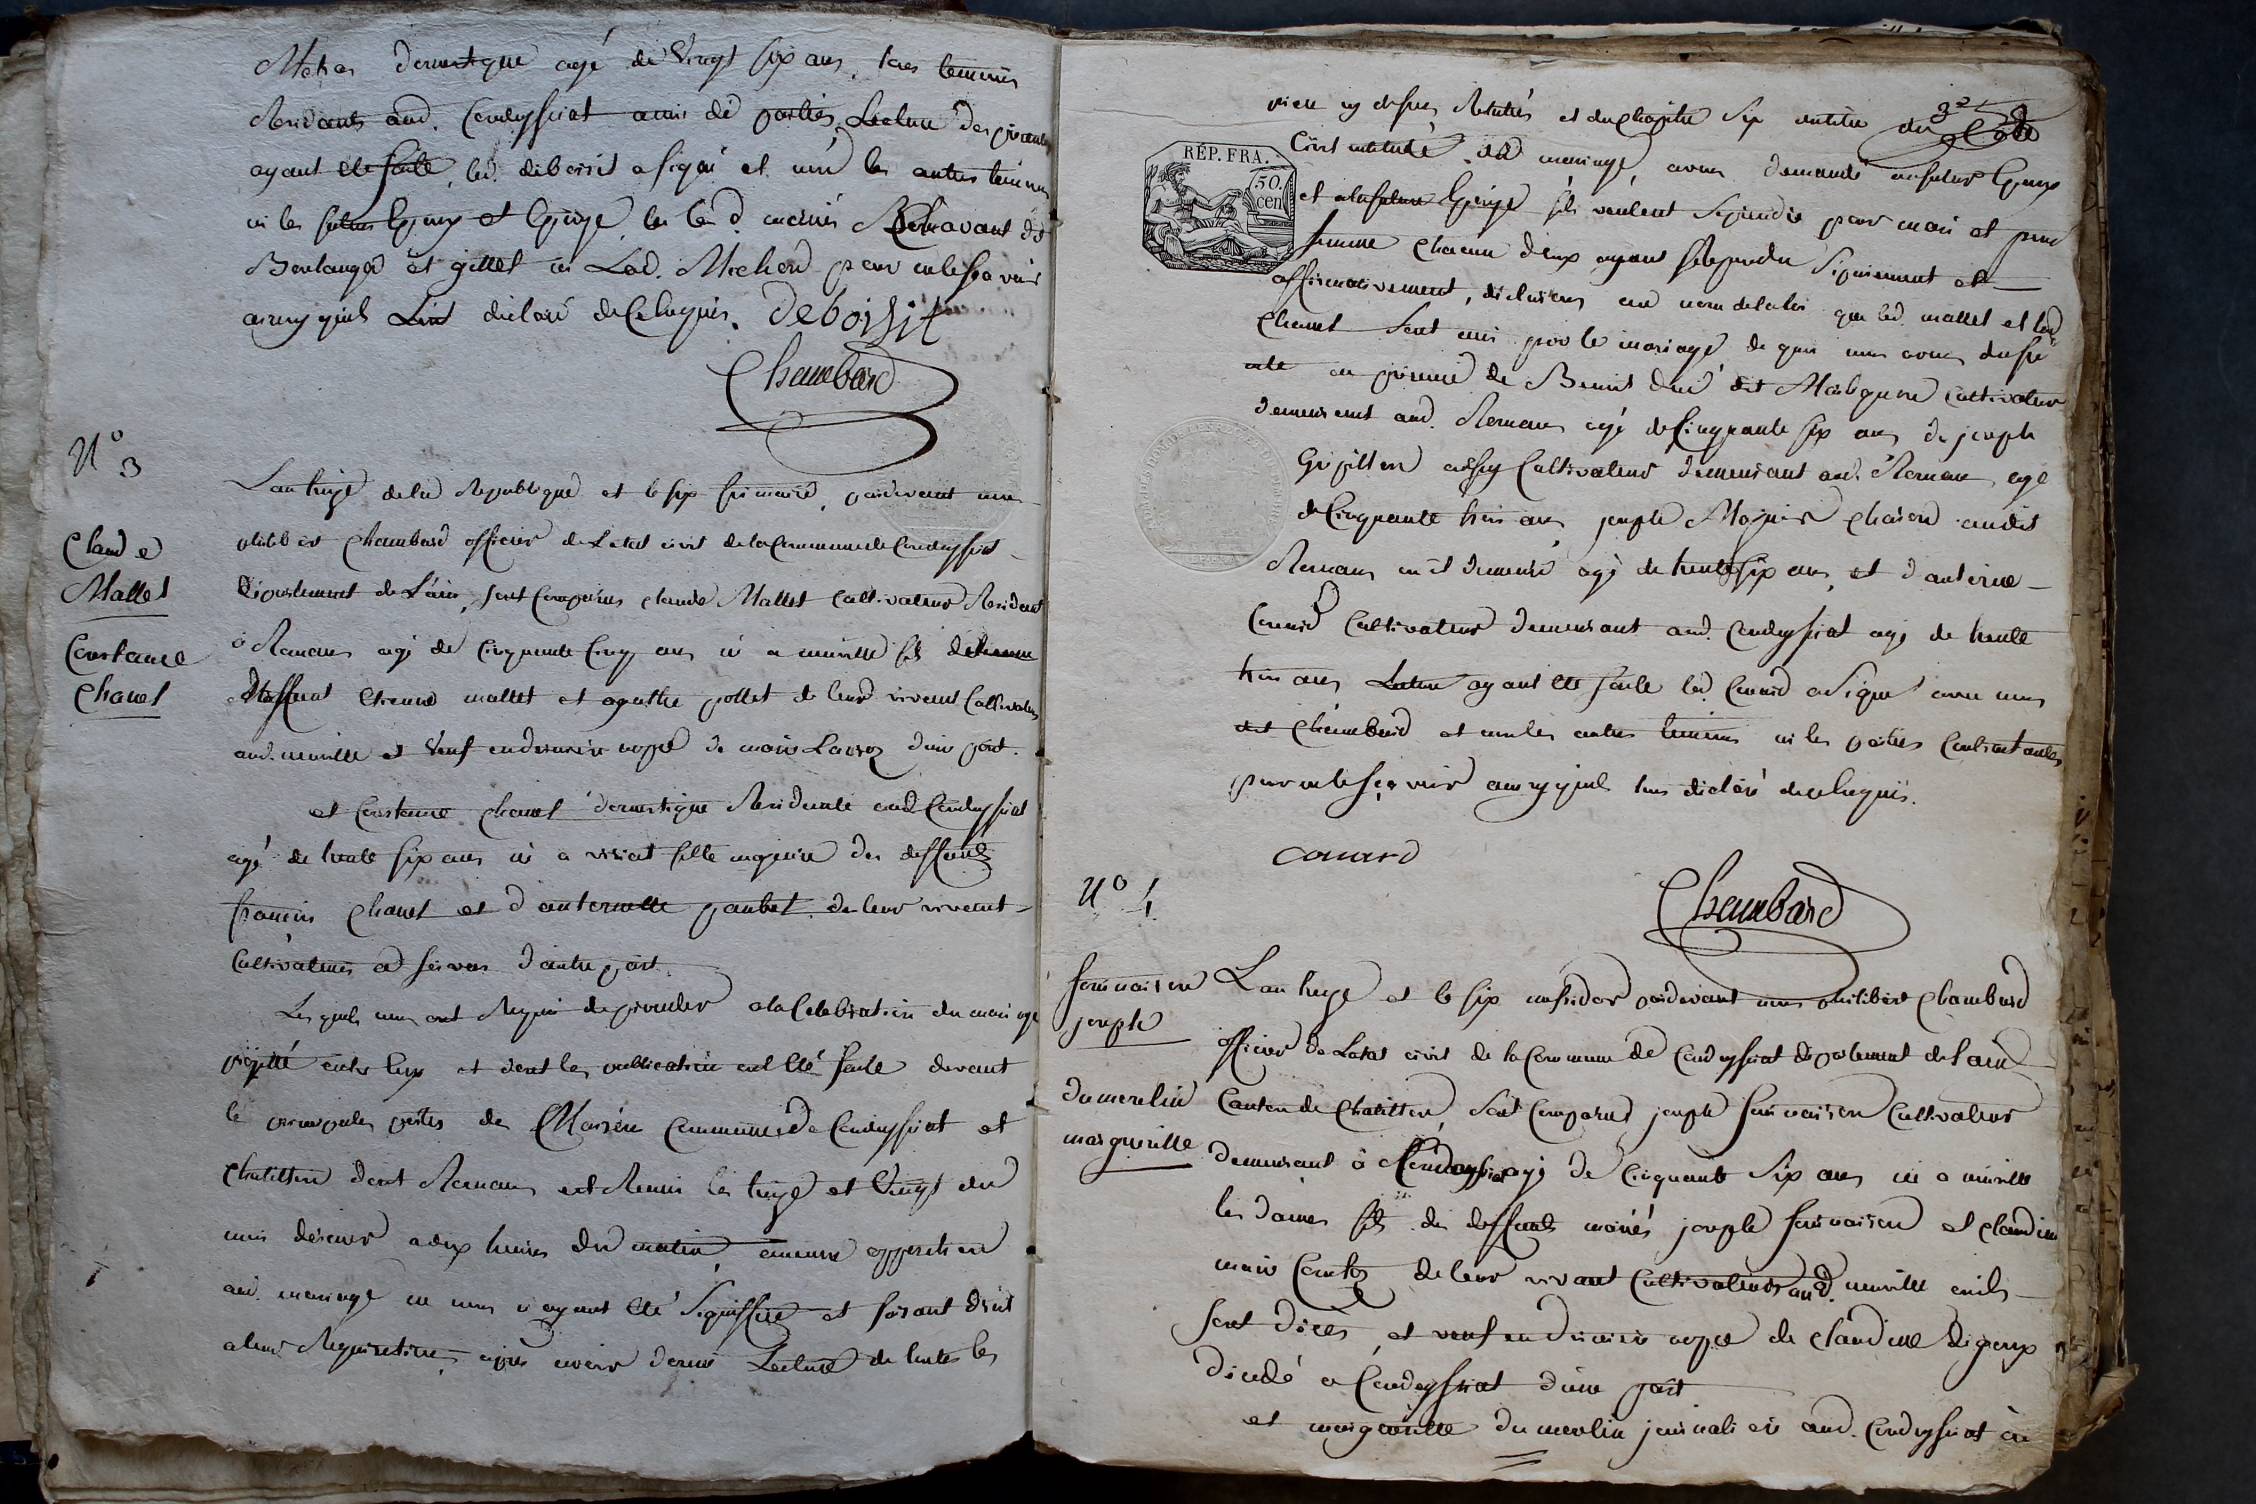 domestique agé de Vingt six ans, tous temoins
Residants aud. Condeyssiat amis des parties, Lecture des presentes
ayant été faite, led. deboissit a signé et non les autres temoins
ni les futurs Epoux et Epouze,
Boulanger et gillet ni Lad. Michon pour ne le savoir
ainsy quils L'ont déclaré de Ce Enquis. Deboissit
Chambard
N° 3
Claude
Mallet
Constance
Chanel
L'an treize de la Republique et le six frimaire, pardevant nous
philibert Chambard officier de Letat civil de la Commune de Condeyssiat
département de L'ain, sont Comparus claude Mallet Cultivateur Residant
à Romans agé de Cinquante Cinq ans né a neuville fils
deffunt Etienne mallet et agathe pollet de leurs vivant Cultivateurs
aud. neuville et Veuf en dernière noppe de marie d'une part.
et Constance Chanel domestique Residante aud. Condeyssiat
agé de trente six ans né a fille majeure des deffunts
françois Chanel et d'antoinette de leur vivant
Cultivateurs a d'autre part.
Lesquels nous ont Requis de proceder a la Celebration du mariage
projetté entre Eux et dont les publications ont été faite devant
le principales portes de Maison Commune de Condeyssiat et
Chatillon dont Romans est Reuni les treize et Vingt du
mois dernier a deux heures du matin, aucune opposition
aud. mariage ne nous ayant été Signiffiée et faisant droit
a leur Requisition, après avoir donné Lecture de toutes les
pièces cy dessus Relatées et du Chapitre Six intitulé du Code
Civil intitulé du mariage, avons demandé au futur Epoux
et a la future Epouze s'ils veulent Se prendre pour mari et pour
femme Chacun d'eux ayant Répondu Séparément et
affirmativement, déclarons au nom de la loi que led. mallet et lad.
Chanel sont unis par le mariage de quoi nous avons dressé
acte en présence de Benoit dit Cultivateur
demeurant aud. Romans agé de Cinquante six ans, de joseph
aussy Cultivateur demeurant aud. Romans, agé
de Cinquante trois ans, joseph audit
Romans ou il demeure agé de trente six ans, et d'antoine
Conard Cultivateur demeurant aud. Condeyssiat agé de trente
trois ans Lecture ayant été faite led. Conard a Signé avec nous
dit Chambard et non les autres temoins ni les parties Contractantes
pour ne le sçavoir ainsy quils l'ont déclaré de ce Enquis.
RÉP. FRA.
50.
cen
conard
Chambard
N° 4
joseph
dumerlin
margueritte
L'an treize et le six messidor pardevant nous philibert Chambard
officier de L'etat civil de la Commune de Condeyssiat département de l'ain
Canton de Chatillon, sont Comparus joseph Cultivateur
demeurant à Condeyssiat agé de Cinquante Six ans né a neuville
les dames fils des deffunts mariés joseph et claudine
marie de leur vivant Cultivateurs aud. neuville ou ils
sont décés, et veuf en dernière noppe de claudine
décédé a Condeyssiat d'une part
et margueritte dumerlin journalière aud. Condeyssiat née